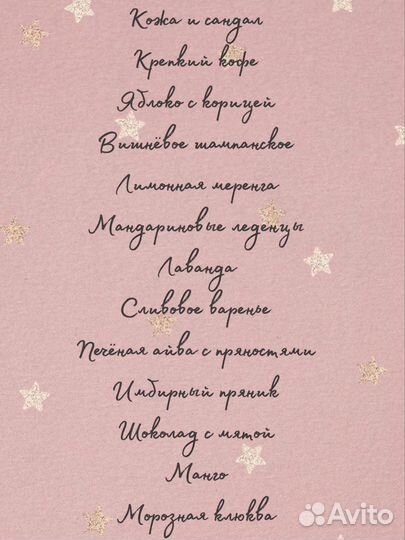 Кожа и сандал
Крепкий кофе
Яблоко с корицей
Вишнёвое шампанское
Лимонная меренга
Мандариновые леденцы
Лаванда
Сливовое варенье
Печёная айва с пряностями
Имбирный пряник
Шоколад с мятой
Манго
Морозная клюква
Avito